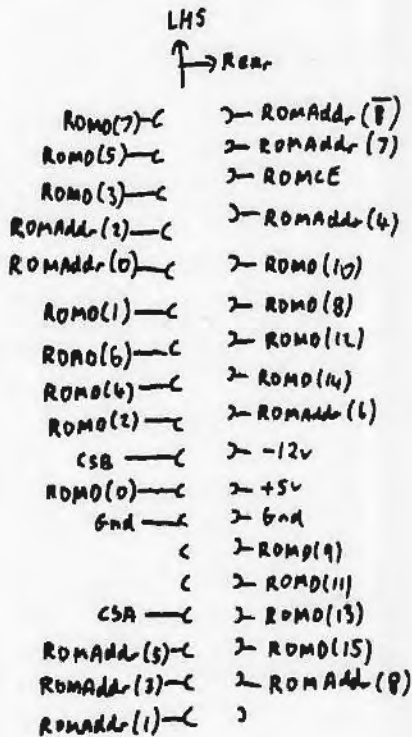 LHS
Rear
ROMD(7) ROMAddr(8̅)
ROMD(5) ROMAddr(7)
ROMD(3) ROMCE
ROMAddr(2) ROMAddr(4)
ROMAddr(0) ROMD(10)
ROMD(1) ROMD(8)
ROMD(6) ROMD(12)
ROMD(4) ROMD(14)
ROMD(2) ROMAddr(6)
CSB -12v
ROMD(0) +5v
Gnd Gnd
ROMD(9)
ROMD(11)
CSA ROMD(13)
ROMAddr(5) ROMD(15)
ROMAddr(3) ROMAddr(8)
ROMAddr(1)